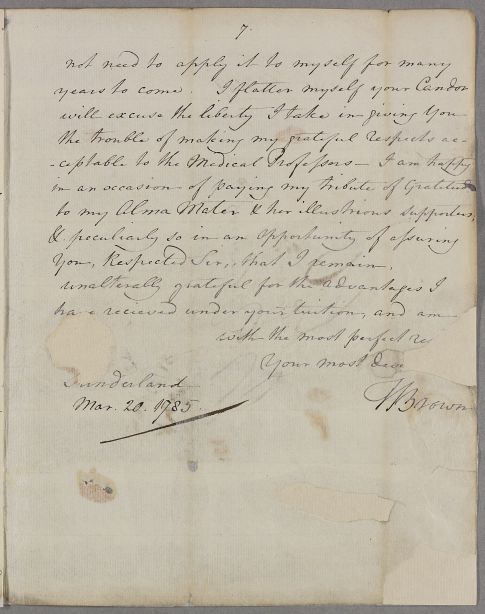 7.
not need to apply it to myself for many
years to come. I flatter myself your Candor
will excuse the liberty I take in giving You
the trouble of making my grateful respects ac-
-ceptable to the Medical Professors — I am happy
in an occasion of paying my tribute of Gratitude
to my Alma Mater & her illustrious supporters,
& peculiarly so in an Opportunity of assuring
You, Respected Sir, that I remain,
unalterally grateful for the advantages I
have recieved under your tuition, and am
with the most perfect re
Your most
Sunderland
Mar. 20. 1785.
Brown